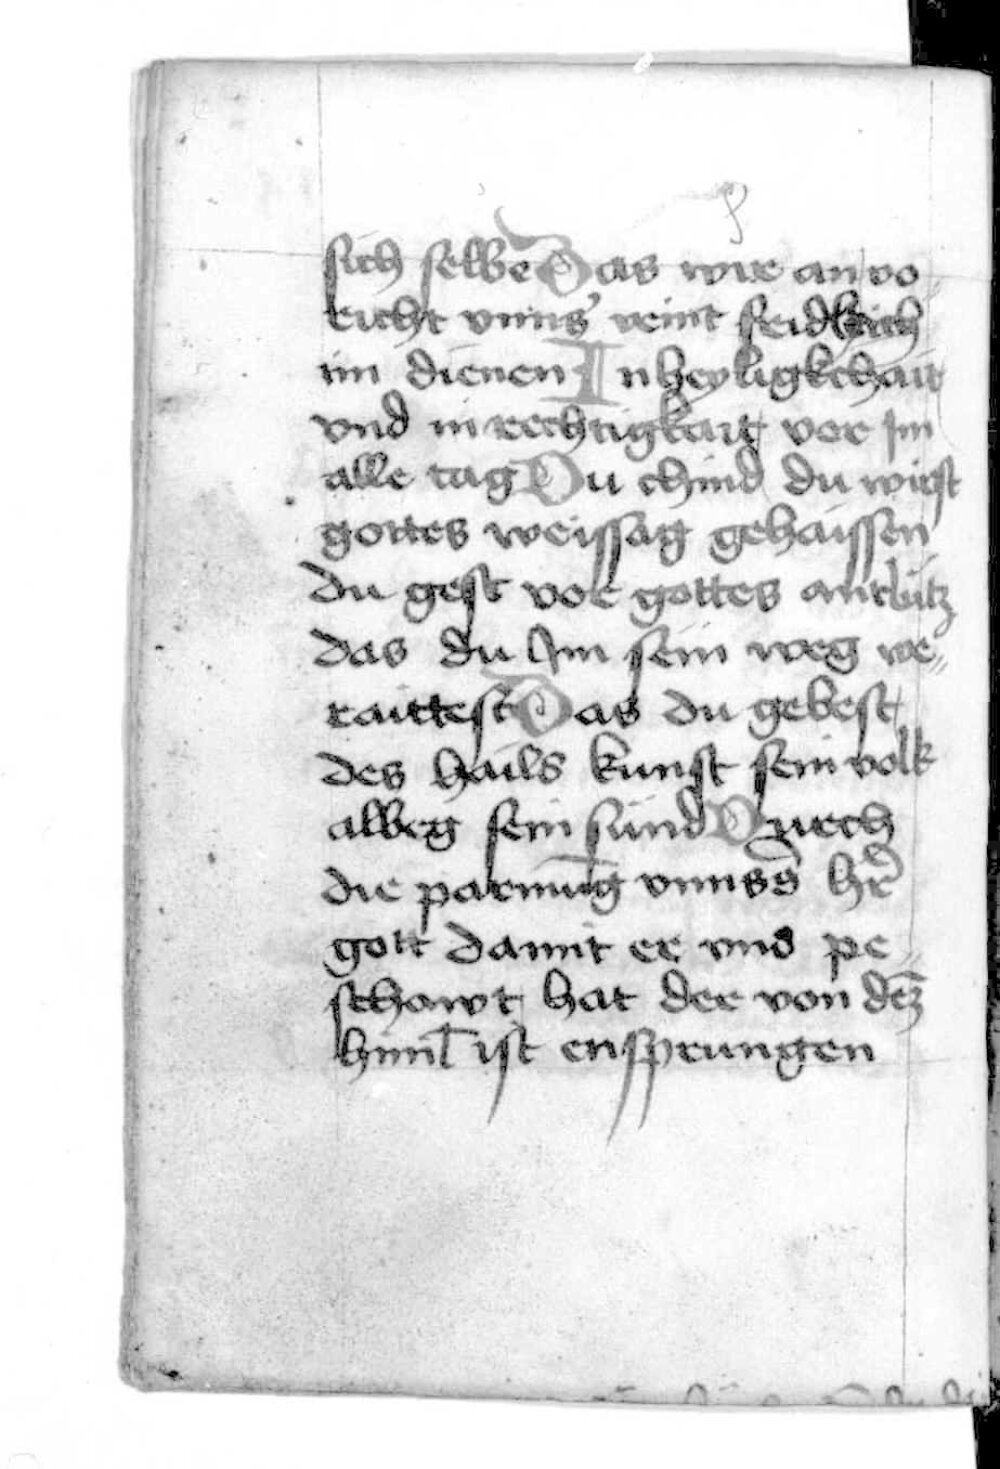 sich selbē Das wir an vo
richt vnns' veint freidleich
im dienen In heyligkchait
vnd in rechtigkait vor Im
alle tag Du chind du wirst
gottes weissag gehaissen
du gest vor gottes antlütz
das du Im sein weg we„
raittest Das du gebest
des hails kunst sein volk
albeg sein sünd Durch
die parmu̅g vnnss̄ hr̄e
gott damit er vns pe„
schowt hat der von dez̄
himl̄ ist ensprungen